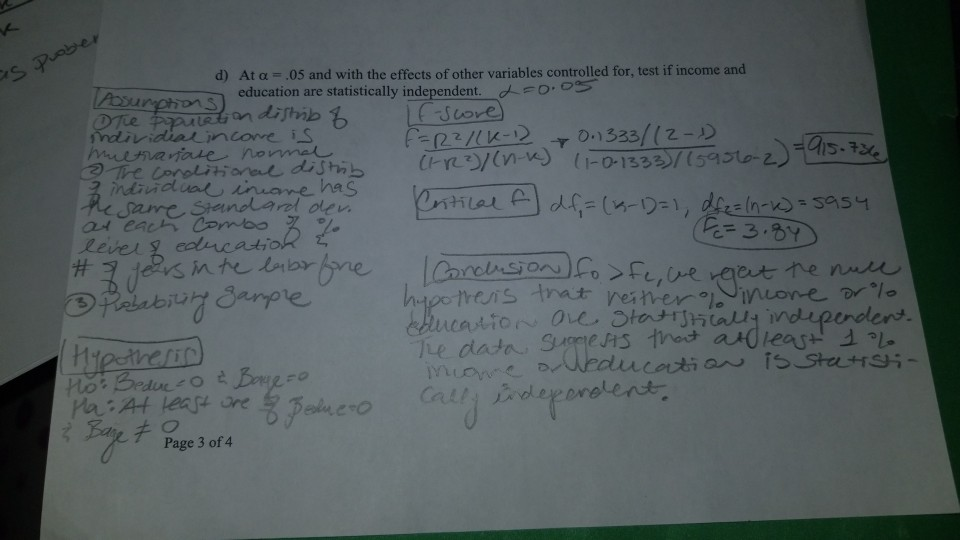 as proble
d) At α = .05 and with the effects of other variables controlled for, test if income and
education are statistically independent. α=0.05
Assumptions
① The population distrib of
individual income is
multivariate normal
② The conditional distrib
of individual income has
the same standard dev.
at each combo of %
level of education &
# of years in the labor force
③ Probability Sample
Hypothesis
Ho: Beduc=0 & Bage=0
Ha: At least one of Beduc=0
& Bage ≠ 0
F-score
F=R2/(K-1) 0.1333/(2-1)
(1-R2)/(n-K) (1-0.1333)/(5956-2) =915.736
Critical F df1=(K-1)=1, df2=(n-K)=5954
Fc=3.84
Conclusion fo>fc, we reject the null
hypothesis that neither % income or %
education are statistically independent.
The data suggests that at least 1 %
income or education is statisti-
cally independent.
Page 3 of 4